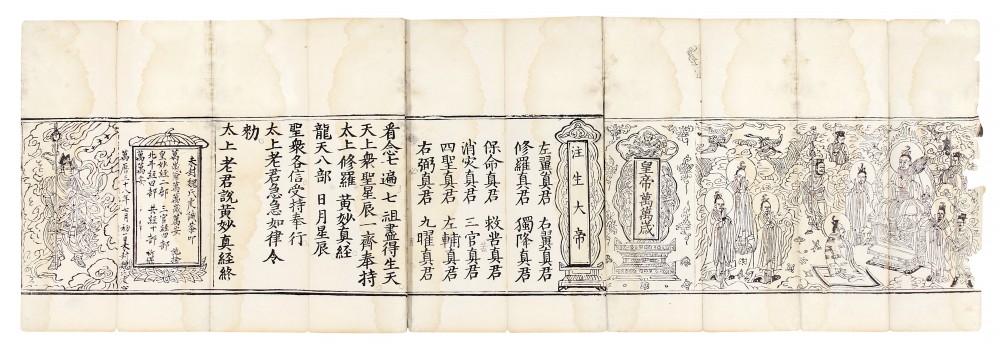 皇帝萬萬歲
注生大帝
左翼真君 右翼真君
修羅真君 獨隆真君
保命真君 救苦真君
消灾真君 三官真君
四聖真君 左輔真君
右弼真君 九曜真君
看念宅遍七祖盡得生天
天上衆聖星辰一齊奉持
太上修羅黄妙真経
龍天八部日月星辰
聖衆各信受持奉行
太上老君急急如律令
勑
太上老君說黄妙真経終
皇妙經二部 三官經四部
北斗經四部 共經十部